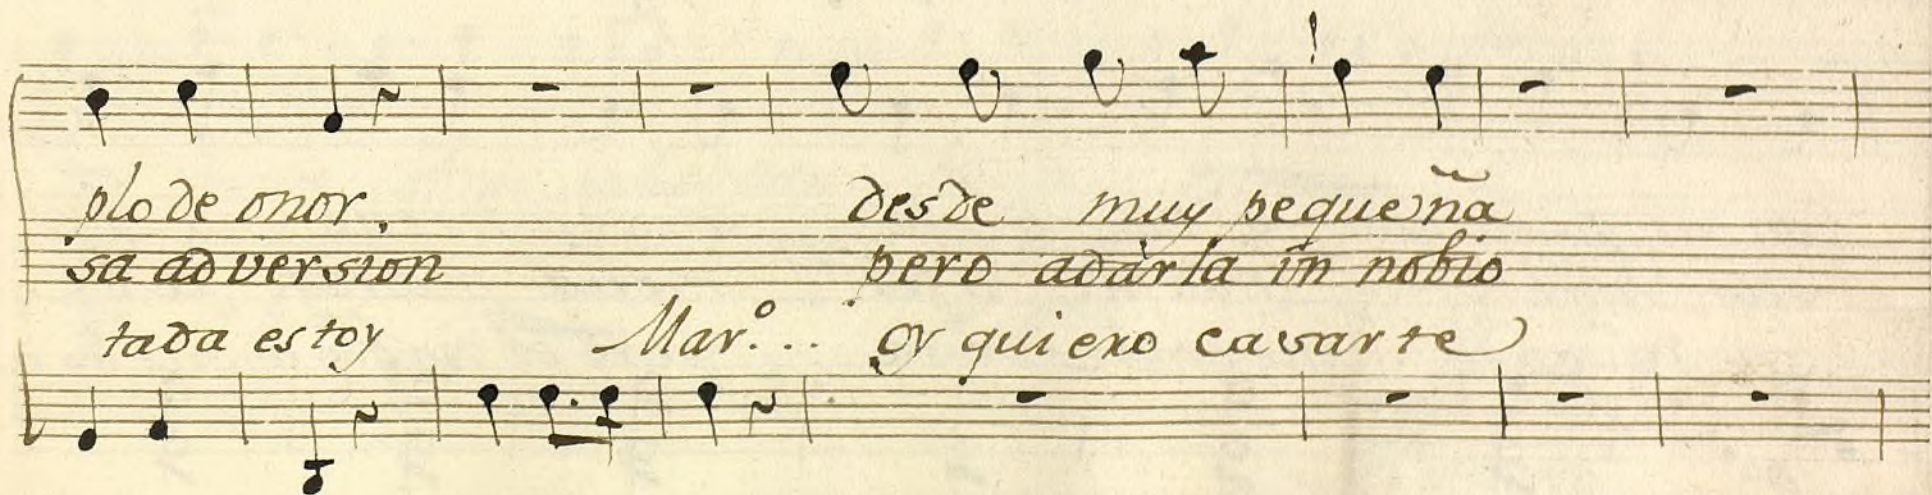 plo de onor. desde muy pequeña
sa adversion pero adàrla ùn nobio
tada estoy Mar.º... oy quiero casarte